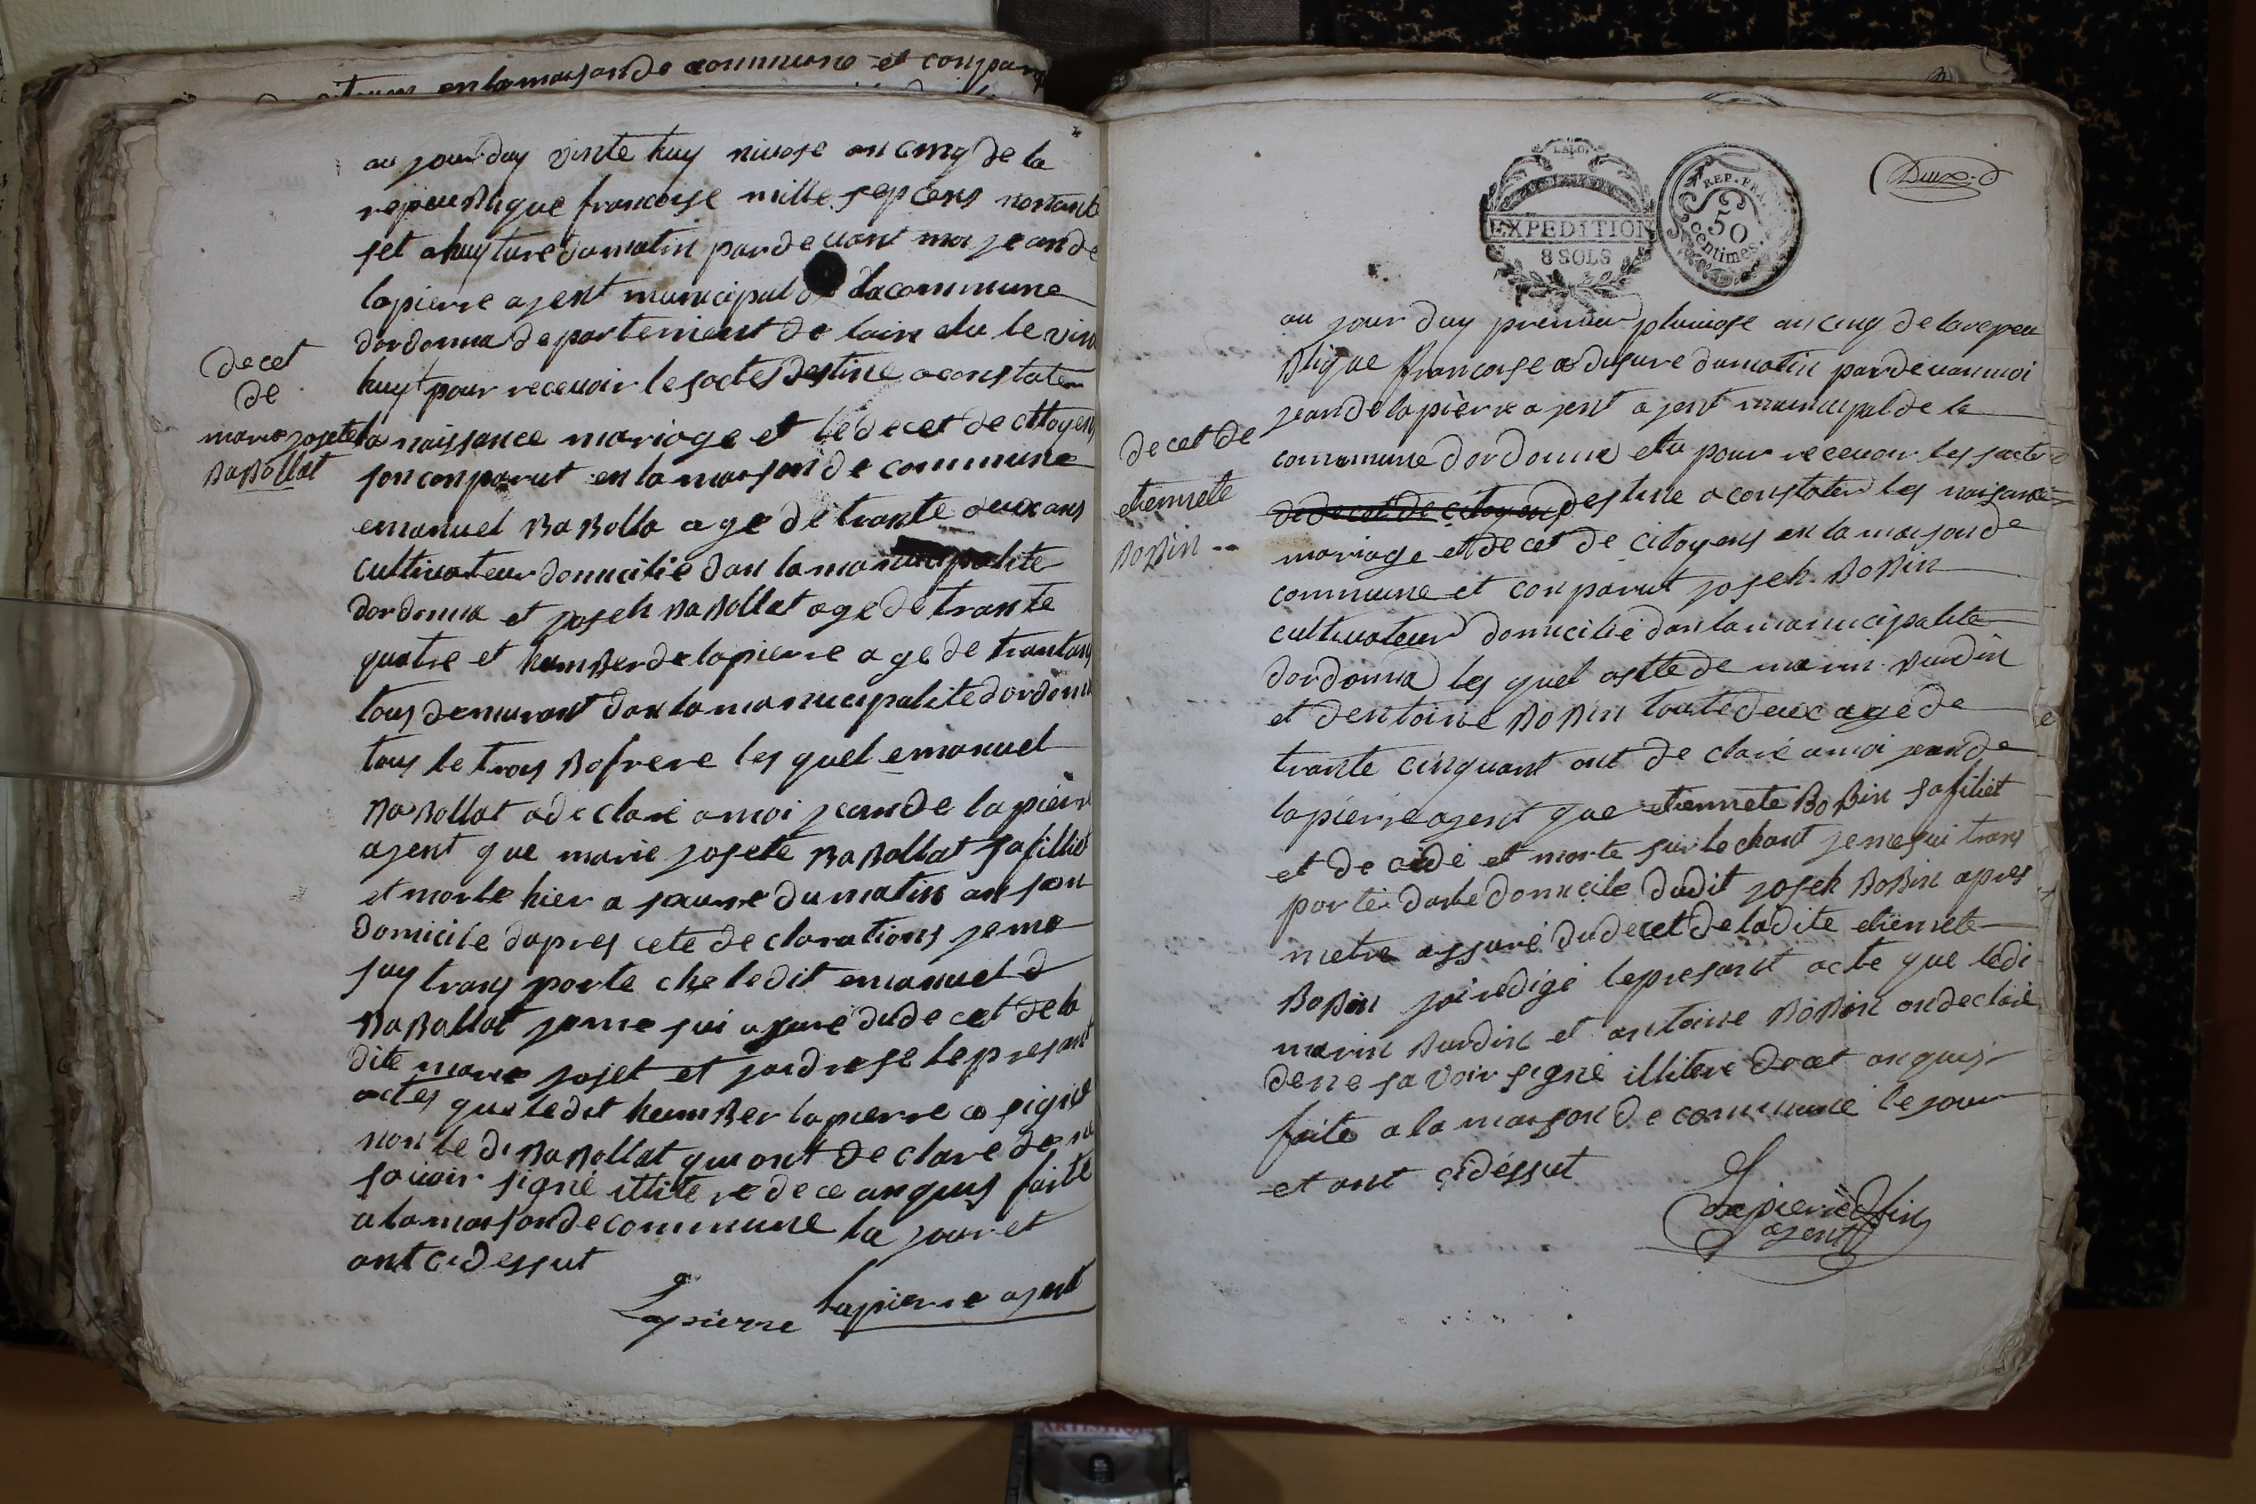 en la maison de commune et conpar
au jour duy vinte huy nivose an cinq de la
repeublique francoise mille sep cens nonante
set a huyture du matin par de vant moi jean de
lapierre agent municipal de la commune
dordonna departement de lain elu le vin
huyt pour recevoir lesactes destine a constater
la naissance mariage et le decet de citoyens
son conparut en la maison de commune
emanuel Babolla age de trante deux ans
cultivateur domicilie dan la manucipalite
dordonna et joseh Babollat age de trante
quatre et humber de lapierre age de trantans
tous demurant dan la manucipalite dordonna
tous le trois Bofrere les quel emanuel
Babollat a de clare a moi jean de la pierre
agent que marie josete Babollat sa filliet
et morte hier a seure du matin an son
domicile dapres cete de clarations je me
suy trans porte che ledit emanuel d
Babollat je me sui assure du de cet de la
dite marie sojet et jai drese le presant
actes que ledit humber lapierre a signe
non le di Babollat qui ont de clare de ne
savoir signe illitere de ce anquis faite
a la maison de commune la jour et
ant cidessut
Lapierre lapierre agent
decet
de
marie josete
Babollat
Deux
EXPEDITION
8 SOLS
REP. FRA.
50
centimes.
au jour duy premier pluviose an cinq de larepeu
Blique francoise a disure du matin par de van moi
jean de lapierre agent agent municipal de la
commune dordonna elu pour recevoir les sactes
de decet de citoyens destine a constater les naisance
mariage et de cet de citoyens en la maison de
commune et conparut joseh Bobin
cultivateur domicilie dan la manucipalite
dordonna les quel asiste de marin Burdin
et dentoine Bobin toute deux age de
trante cinquant ont de clare a moi jean de
lapierre agent que etiennete Bobin sa filiet
et de cide et morte sur le chant je me sui trans
porte dan le domicile dudit joseh Bobin apres
metre assure du decet de ladite etiennete
Bobin jai redige le presant acte que ledi
marin Burdin et antoine Bobin on declare
de ne savoir signe illitere de cet anquis
faite a la maison de commune le jour
et ant cidessut
Lapierre fils
agent
decet de
etiennete
Bobin